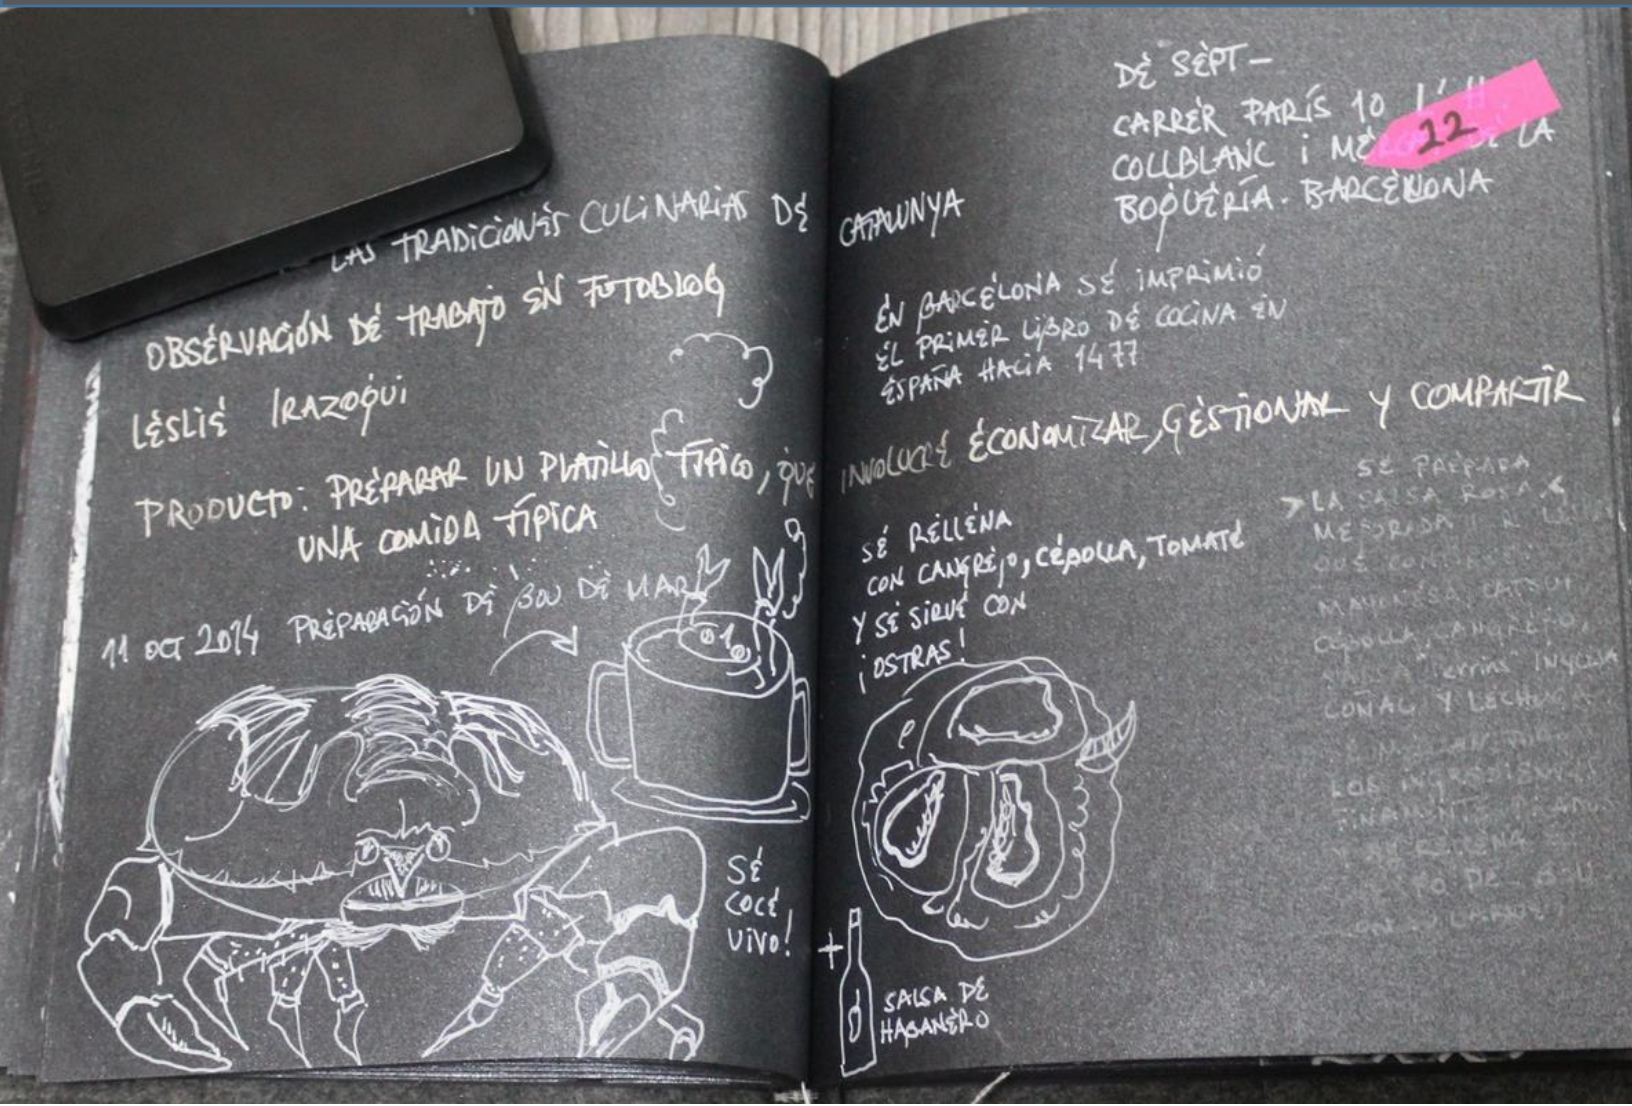 LAS TRADICIONES CULINARIAS DE CATALUNYA
OBSERVACIÓN DE TRABAJO EN FOTOBLOG
LESLIE IRAZOQUI
PRODUCTO: PREPARAR UN PLATILLO TÍPICO, QUE INVOLUCRE ECONOMIZAR, GESTIONAR Y COMPARTIR
UNA COMIDA TÍPICA
11 OCT 2014 PREPARACIÓN DE BOU DE MAR
SE
COCE
VIVO!
DE SEPT-
CARRER PARÍS 10
22
COLLBLANC i LA
BOQUERÍA. BARCELONA
EN BARCELONA SE IMPRIMIÓ
EL PRIMER LIBRO DE COCINA EN
ESPAÑA HACIA 1477
SE RELLENA
CON CANGREJO, CEBOLLA, TOMATE
Y SE SIRVE CON
¡OSTRAS!
+
SALSA DE
HABANERO
SE PREPARA
LA SALSA ROSA
MEJORADA
QUE
CEBOLLA, CANGREJO,
INGLESA
COÑAC Y LECHUGA
LOS INGREDIENTES